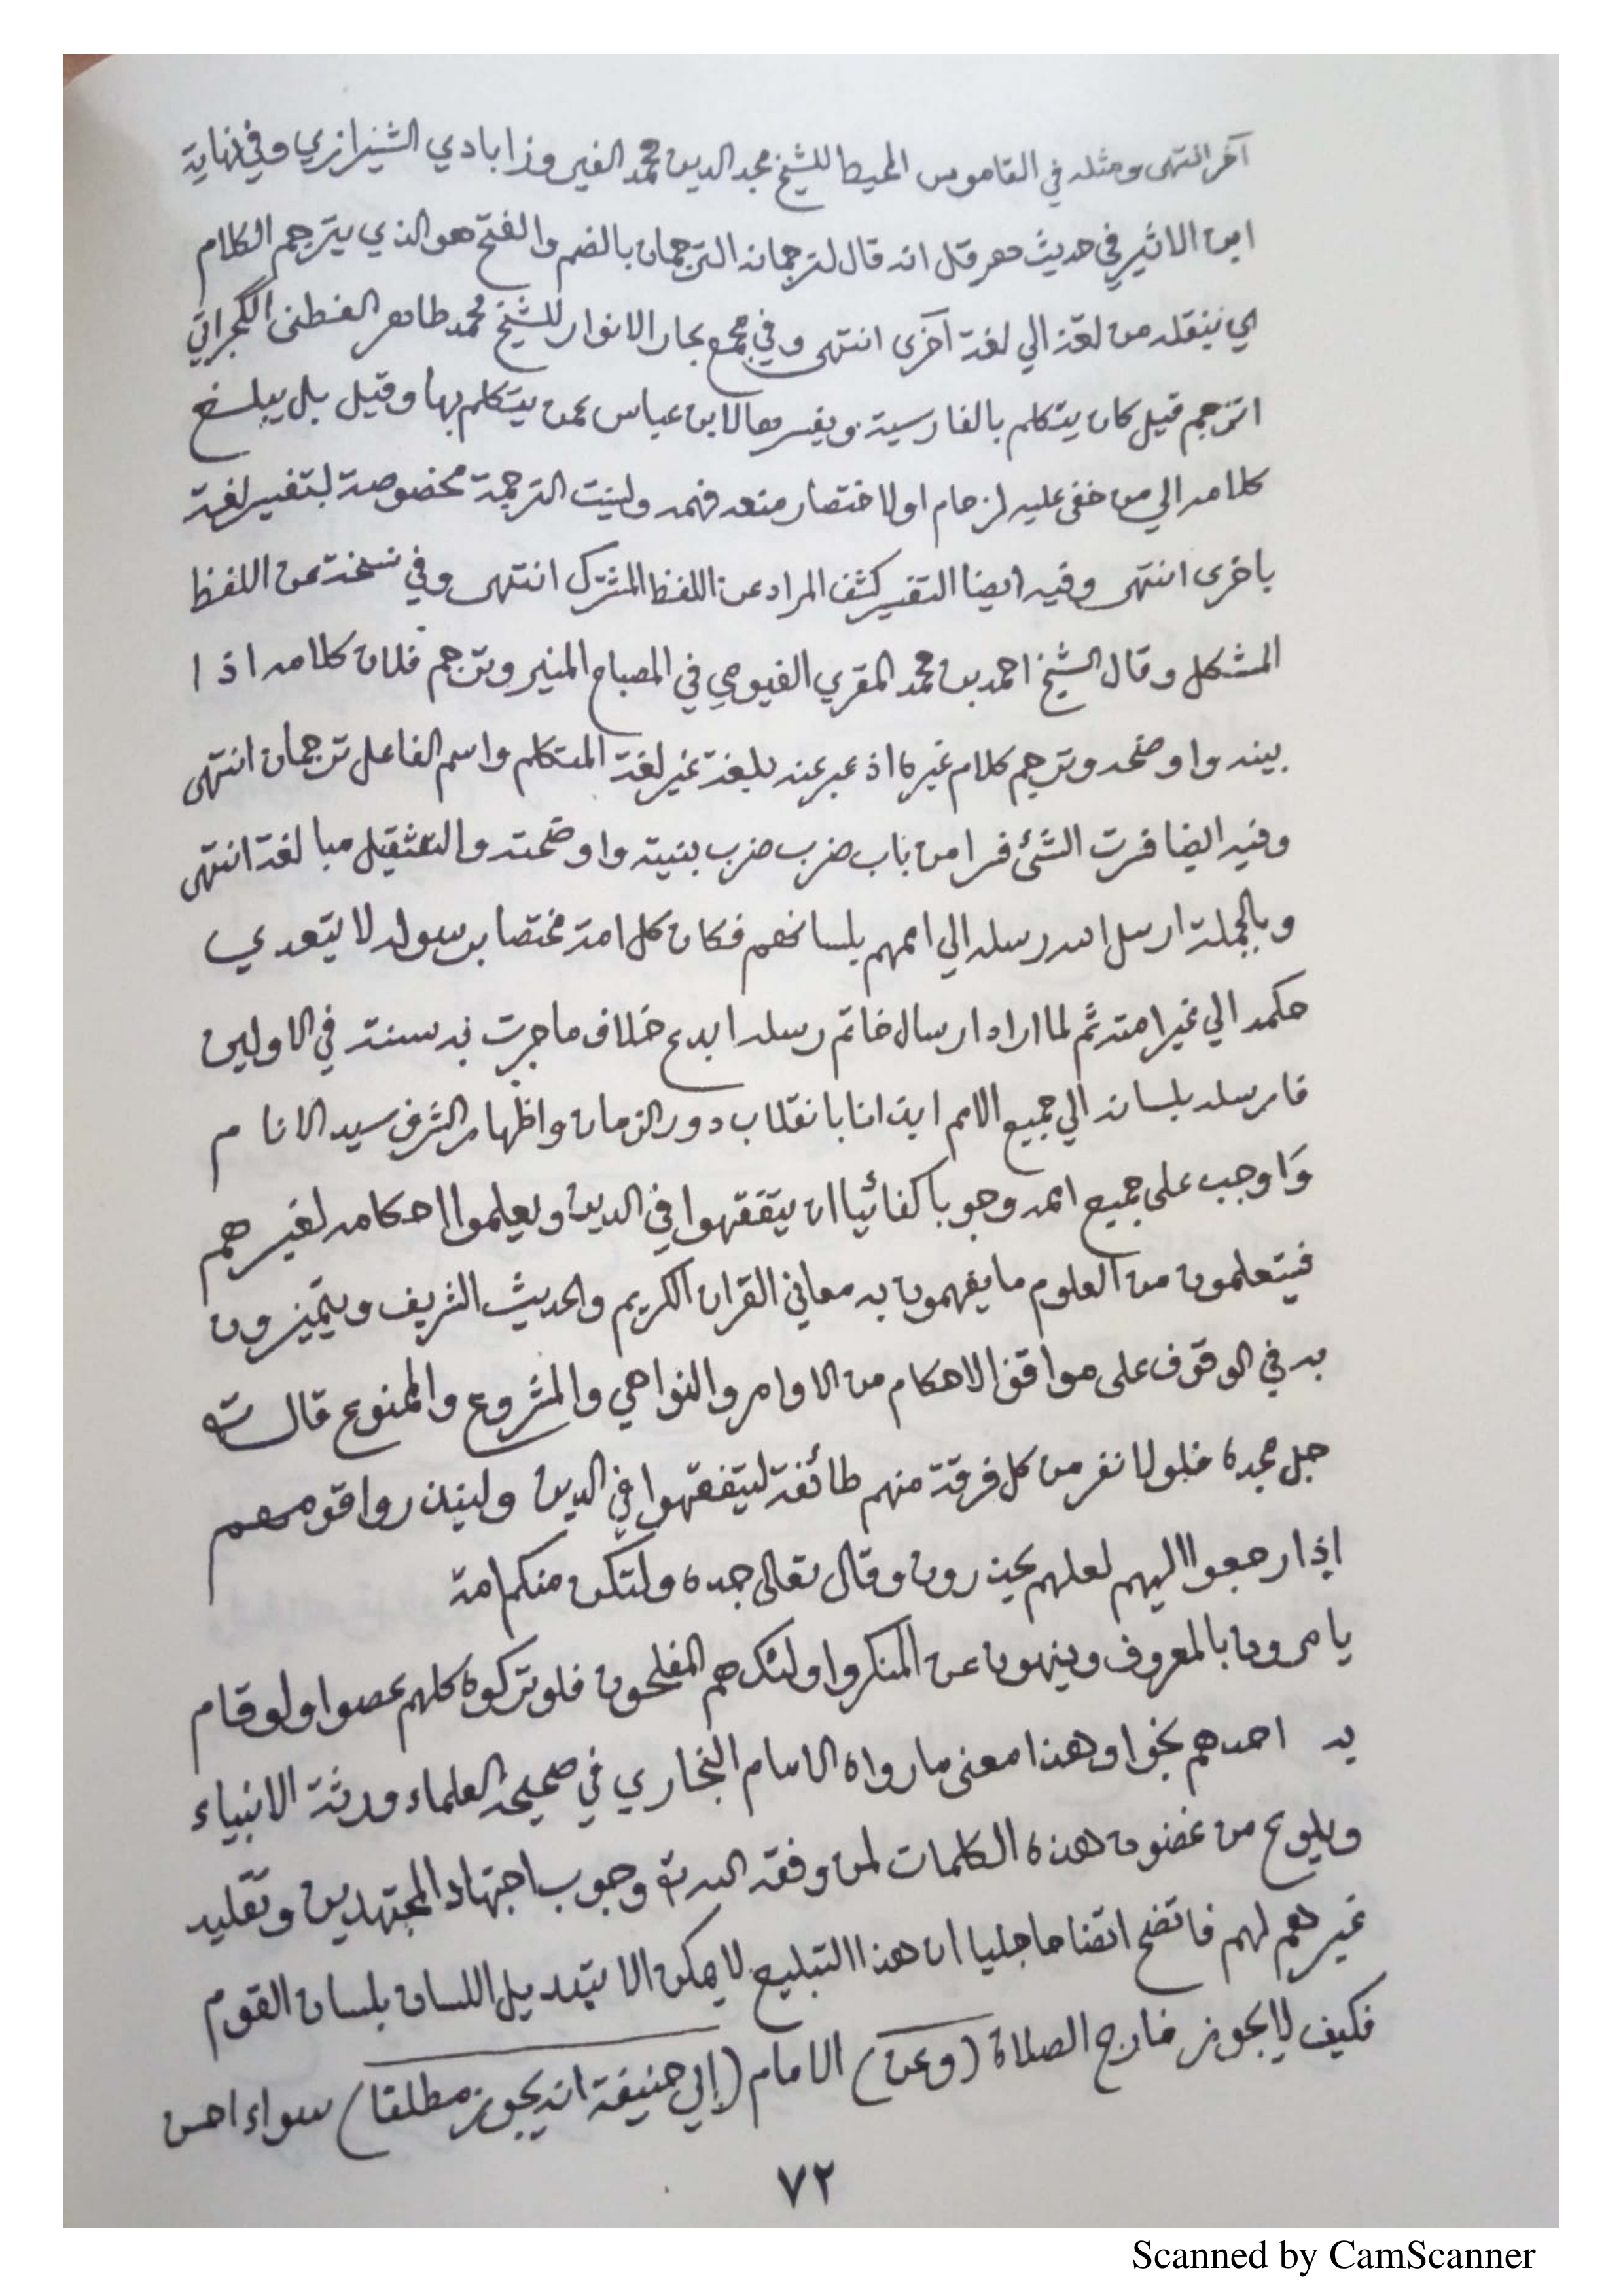 آخر انتهى ومثله في القاموس المحيط للشيخ مجد الدين محمد الفيروزابادي الشيرازي وفي نهاية
ابن الاثير في حديث هرقل انه قال لترجمانه الترجمان بالضم والفتح هو الذي يترجم الكلام
اي ينقله من لغة الي لغة آخرى انتهى وفي مجمع بحار الانوار للشيخ محمد طاهر الفطنى الگجراتي
اترجم قيل كان يتكلم بالفارسية ويفسرها لابن عباس عمن يتكلم بها وقيل بل يبلغ
كلامه الي من خفى عليه لزحام او لاختصار منعه فهمه وليست الترجمة مخصوصة بتفسير لغة
باخرى انتهى وفيه ايضا التفسير كشف المراد عن اللفظ المشترك انتهى وفي نسخة عن اللفظ
المشكل وقال الشيخ احمد بن محمد المقري الفيومي في المصباح المنير وترجم فلان كلامه اذا
بينه واوضحه وترجم كلام غيره اذ عبر عنه بلغة غير لغة المتكلم واسم الفاعل ترجمان انتهى
وفيه ايضا فسرت الشئ فسرا من باب ضرب ضرب بنيته واوضحته والتثقيل مبالغة انتهى
وبالجملة ارسل الله رسله الي اممهم بلسانهم فكان كل امة مختصا برسوله لا يتعدي
حكمه الي غير امته ثم لما اراد ارسال خاتم رسله ابدع خلاف ما جرت به سنته في الاولين
فارسله بلسانه الي جميع الامم ايذانا بانقلاب دور الزمان واظهار الشرف سيد الانام
وَاوجب على جميع امته وجوبا كفائيا ان يتفقهوا في الدين ويعلموا احكامه لغيرهم
فيتعلمون من العلوم ما يفهمون به معاني القران الكريم والحديث الشريف ويتميزون
به في الوقوف على مواقف الاحكام من الاوامر والنواهي والمشروع والممنوع قال الله
جل مجده فلولا نفر من كل فرقة منهم طائفة ليتفقهوا في الدين ولينذروا قومهم
إذا رجعوا اليهم لعلهم يحذرون وقال تعالى جده ولتكن منكم امة
يامرون بالمعروف وينهون عن المنكر واولئك هم المفلحون فلو تركوه كلهم عصوا ولو قام
به احدهم نجوا وهذا معنى ما رواه الامام البخاري في صحيحه العلماء ورثة الانبياء
ويلوح من غضون هذه الكلمات لمن وفقه الله وجوب اجتهاد المجتهدين وتقليد
غيرهم لهم فاتضح اتضاحا جليا ان هذا التبليغ لا يمكن الا بتبديل اللسان بلسان القوم
فكيف لا يجوز خارج الصلاة (وعن) الامام (ابي حنيفة انه يجوز مطلقا) سواء احسن
٧٢
Scanned by CamScanner